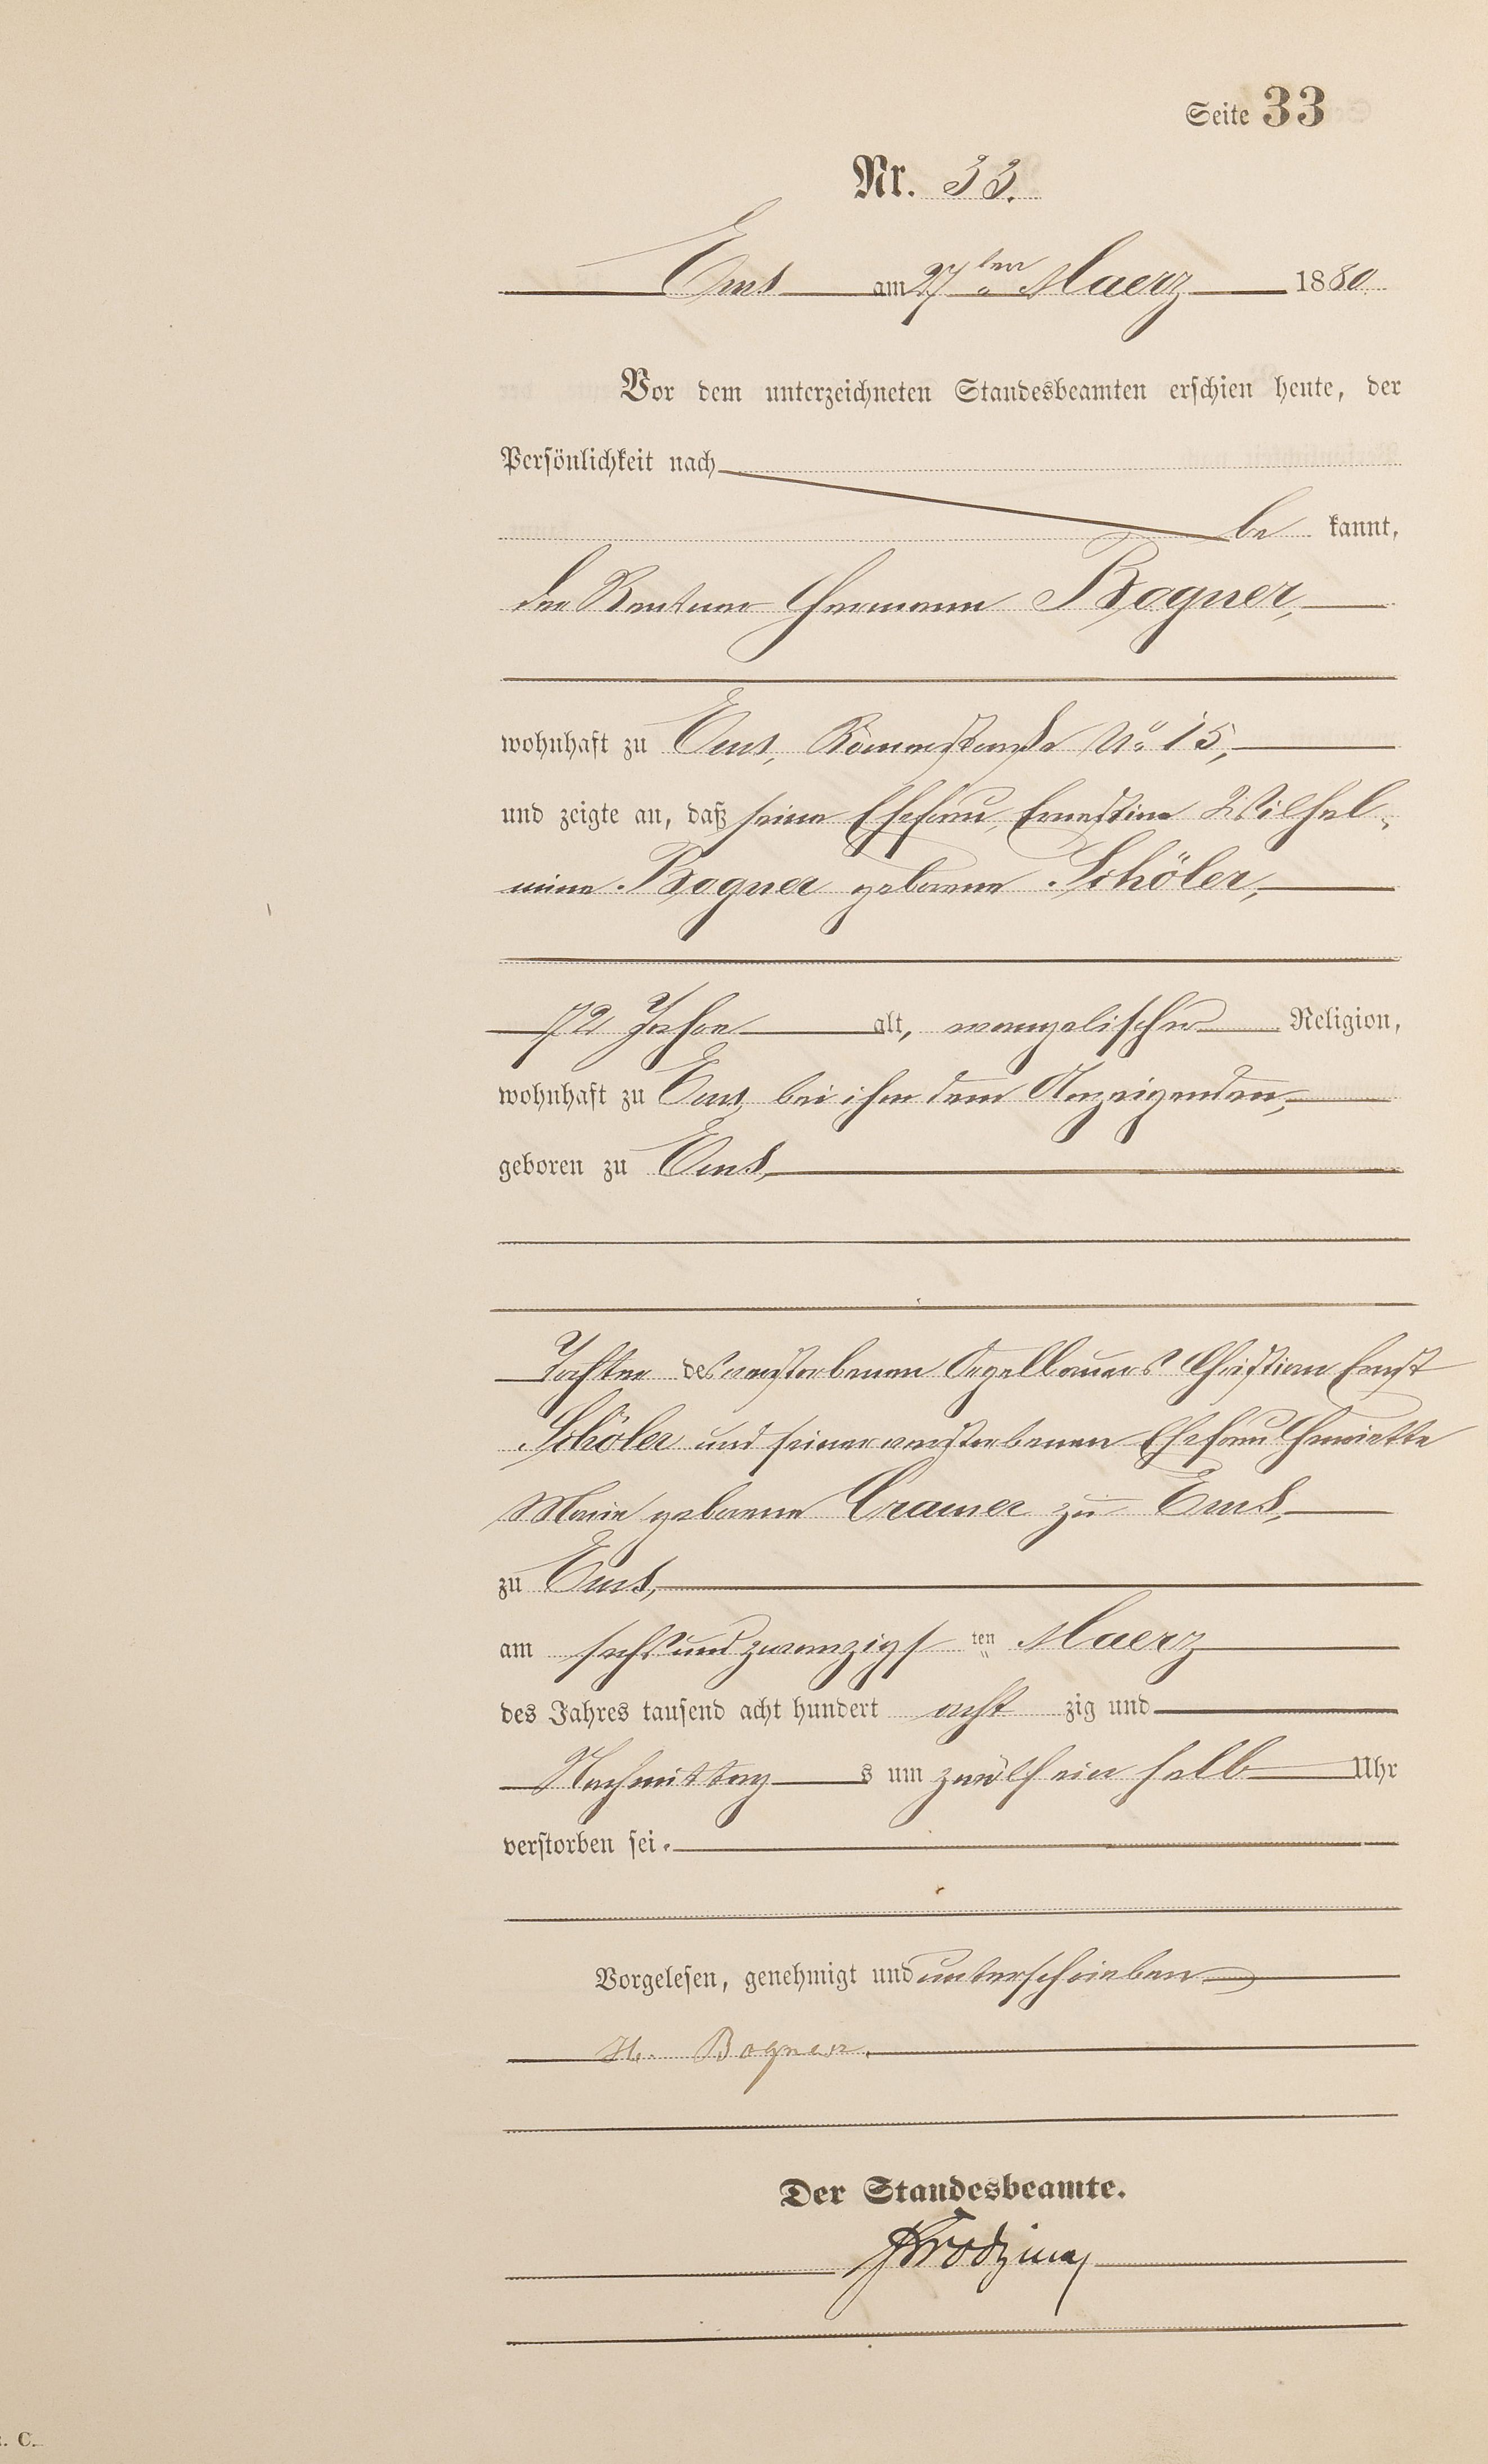 Seite 33
Nr. 33.
Ems am 27ten Maerz 1880
Vor dem unterzeichneten Standesbeamten erschien heute, der
Persönlichkeit nach
be kannt,
der Rentner Hermann Bogner,
wohnhaft zu Ems, Römerstraße No 15,
und zeigte an, daß seine Ehefrau, Ernestine Wilhel-
mine Bogner geborene Schöler,
72 Jahre alt, evangelischer Religion,
wohnhaft zu Ems, bei ihm dem Anzeigenden,
geboren zu Ems,
Tochter des verstorbenen Orgelbauers Christian Ernst
Schöler und seiner verstorbenen Ehefrau Henriette
Marie geborene Cramer zu Ems,
zu Ems,
am sechsundzwanzigsten Maerz
des Jahres tausend acht hundert acht zig und
Nachmittag s um zwölf ein halb Uhr
verstorben sei.
Vorgelesen, genehmigt und unterschrieben
H. Bogner.
Der Standesbeamte.
. C.